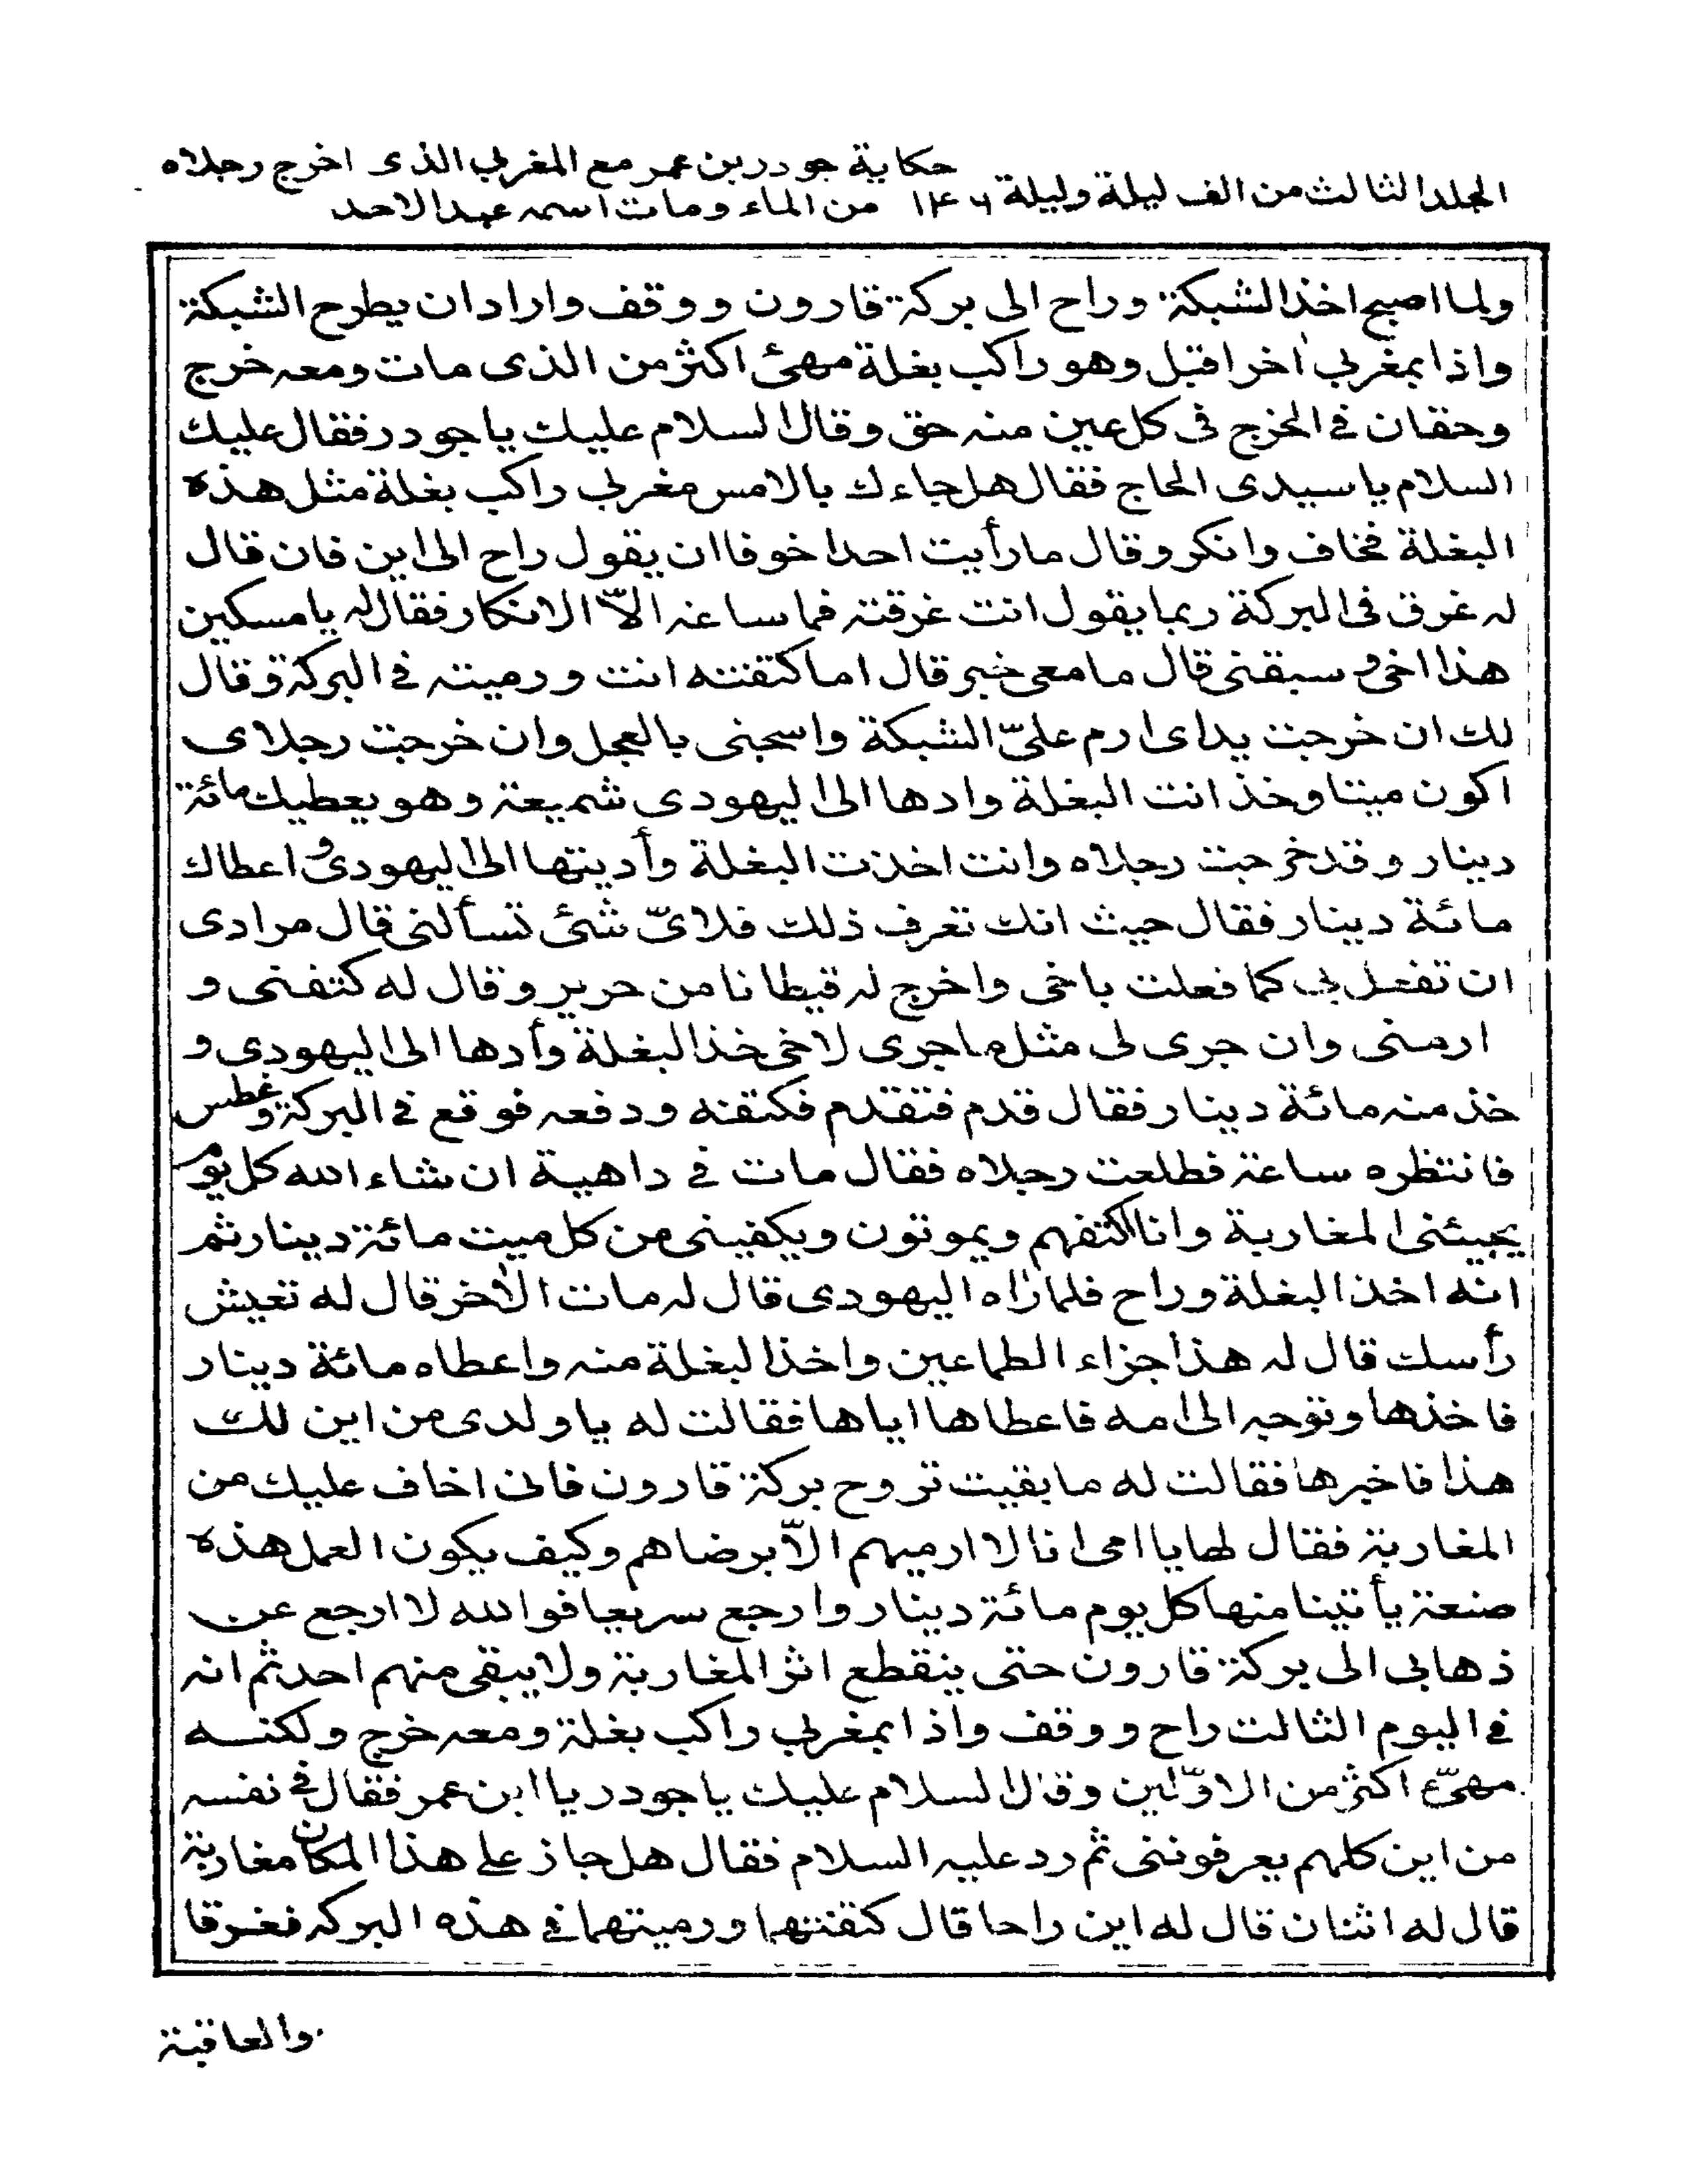 المجلد الثالث من الف ليلة وليلة ١٤٦ حكاية جودر بن عمر مع المغربي الذى اخرج رجلاه
من الماء ومات اسمه عبد الاحد
ولما اصبح اخذ الشبكة وراح الى بركة قارون ووقف واراد ان يطرح الشبكة
واذا بمغربي اخر اقبل وهو راكب بغلة مهئ اكثر من الذى مات ومعه خرج
وحقان في الخرج فى كل عين منه حق وقال السلام عليك يا جودر فقال عليك
السلام يا سيدى الحاج فقال هل جاءك بالامس مغربي راكب بغلة مثل هذه
البغلة فخاف وانكر وقال ما رأيت احدا خوفا ان يقول راح الى اين فان قال
له غرق فى البركة ربما يقول انت غرقته فما ساعه الاّ الانكار فقال له يا مسكين
هذا اخى و سبقنى قال ما معى خبر قال اما كتفته انت ورميته في البركة وقال
لك ان خرجت يداى ارم علىّ الشبكة واسحبنى بالعجل وان خرجت رجلاى
اكون ميتا وخذ انت البغلة وادها الى اليهودى شميعة وهو يعطيك مائة
دينار وقد خرجت رجلاه وانت اخذت البغلة وأديتها الى اليهودى و اعطاك
مائة دينار فقال حيث انك تعرف ذلك فلاىّ شئ تسألنى قال مرادى
ان تفعل بي كما فعلت باخى واخرج له قيطانا من حرير وقال له كتفنى و
ارمنى وان جرى لى مثل ما جرى لاخى خذ البغلة وأدها الى اليهودى و
خذ منه مائة دينار فقال قدم فتقدم فكتفه ودفعه فوقع في البركة وغطس
فانتظره ساعة فطلعت رجلاه فقال مات في داهية ان شاء الله كل يوم
يجيئنى المغاربة وانا اكتفهم ويموتون ويكفينى من كل ميت مائة دينار ثم
انه اخذ البغلة وراح فلما رأه اليهودى قال له مات الأخر قال له تعيش
رأسك قال له هذا جزاء الطماعين واخذ البغلة منه واعطاه مائة دينار
فاخذها وتوجه الى امه فاعطاها اياها فقالت له يا ولدى من اين لك
هذا فاخبرها فقالت له ما بقيت تروح بركة قارون فانى اخاف عليك من
المغاربة فقال لها يا امى انا لا ارميهم الاّ برضاهم وكيف يكون العمل هذه
صنعة يأتينا منها كل يوم مائة دينار وارجع سريعا فوالله لا ارجع عن
ذهابى الى بركة قارون حتى ينقطع اثر المغاربة ولا يبقى منهم احد ثم انه
في اليوم الثالث راح ووقف واذا بمغربي راكب بغلة ومعه خرج ولكنه
مهىّء اكثر من الاوّلين وقال السلام عليك يا جودر يا ابن عمر فقال في نفسه
من اين كلهم يعرفوننى ثم رد عليه السلام فقال هل جاز على هذا المكان مغاربة
قال له اثنان قال له اين راحا قال كتفتهما ورميتهما في هذه البركه فغرقا
والعاقبة